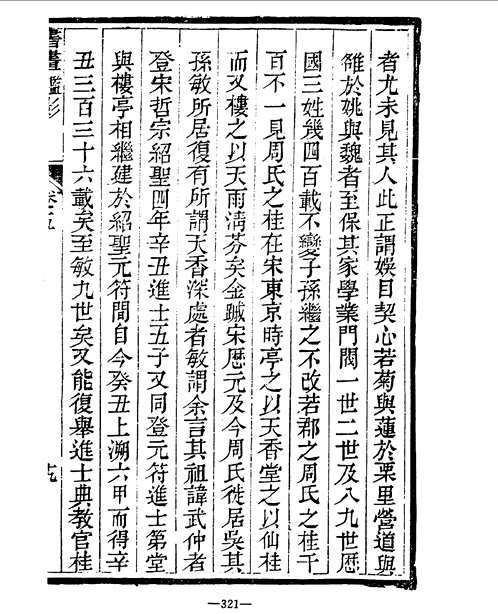 者尤未見其人此正謂娛目契心若菊與蓮於栗里營道與
雒於姚與魏者至保其家學業門閥一世二世及八九世歷
國三姓幾四百載不變子孫繼之不改若郡之周氏之桂千
百不一見周氏之桂在宋東京時亭之以天香堂之以仙桂
而又樓之以天雨淸芬矣金蹴宋歷元及今周氏徙居吳其
孫敏所居復有所謂天香深處者敏謂余言其祖諱武仲者
登宋哲宗紹聖四年辛丑進士五子又同登元符進士第堂
與樓亭相繼建於紹聖元符間自今癸丑上溯六甲而得辛
丑三百三十六載矣至敏九世矣又能復舉進士典敎官桂
書畫鑑影
卷十五
十九
—321—